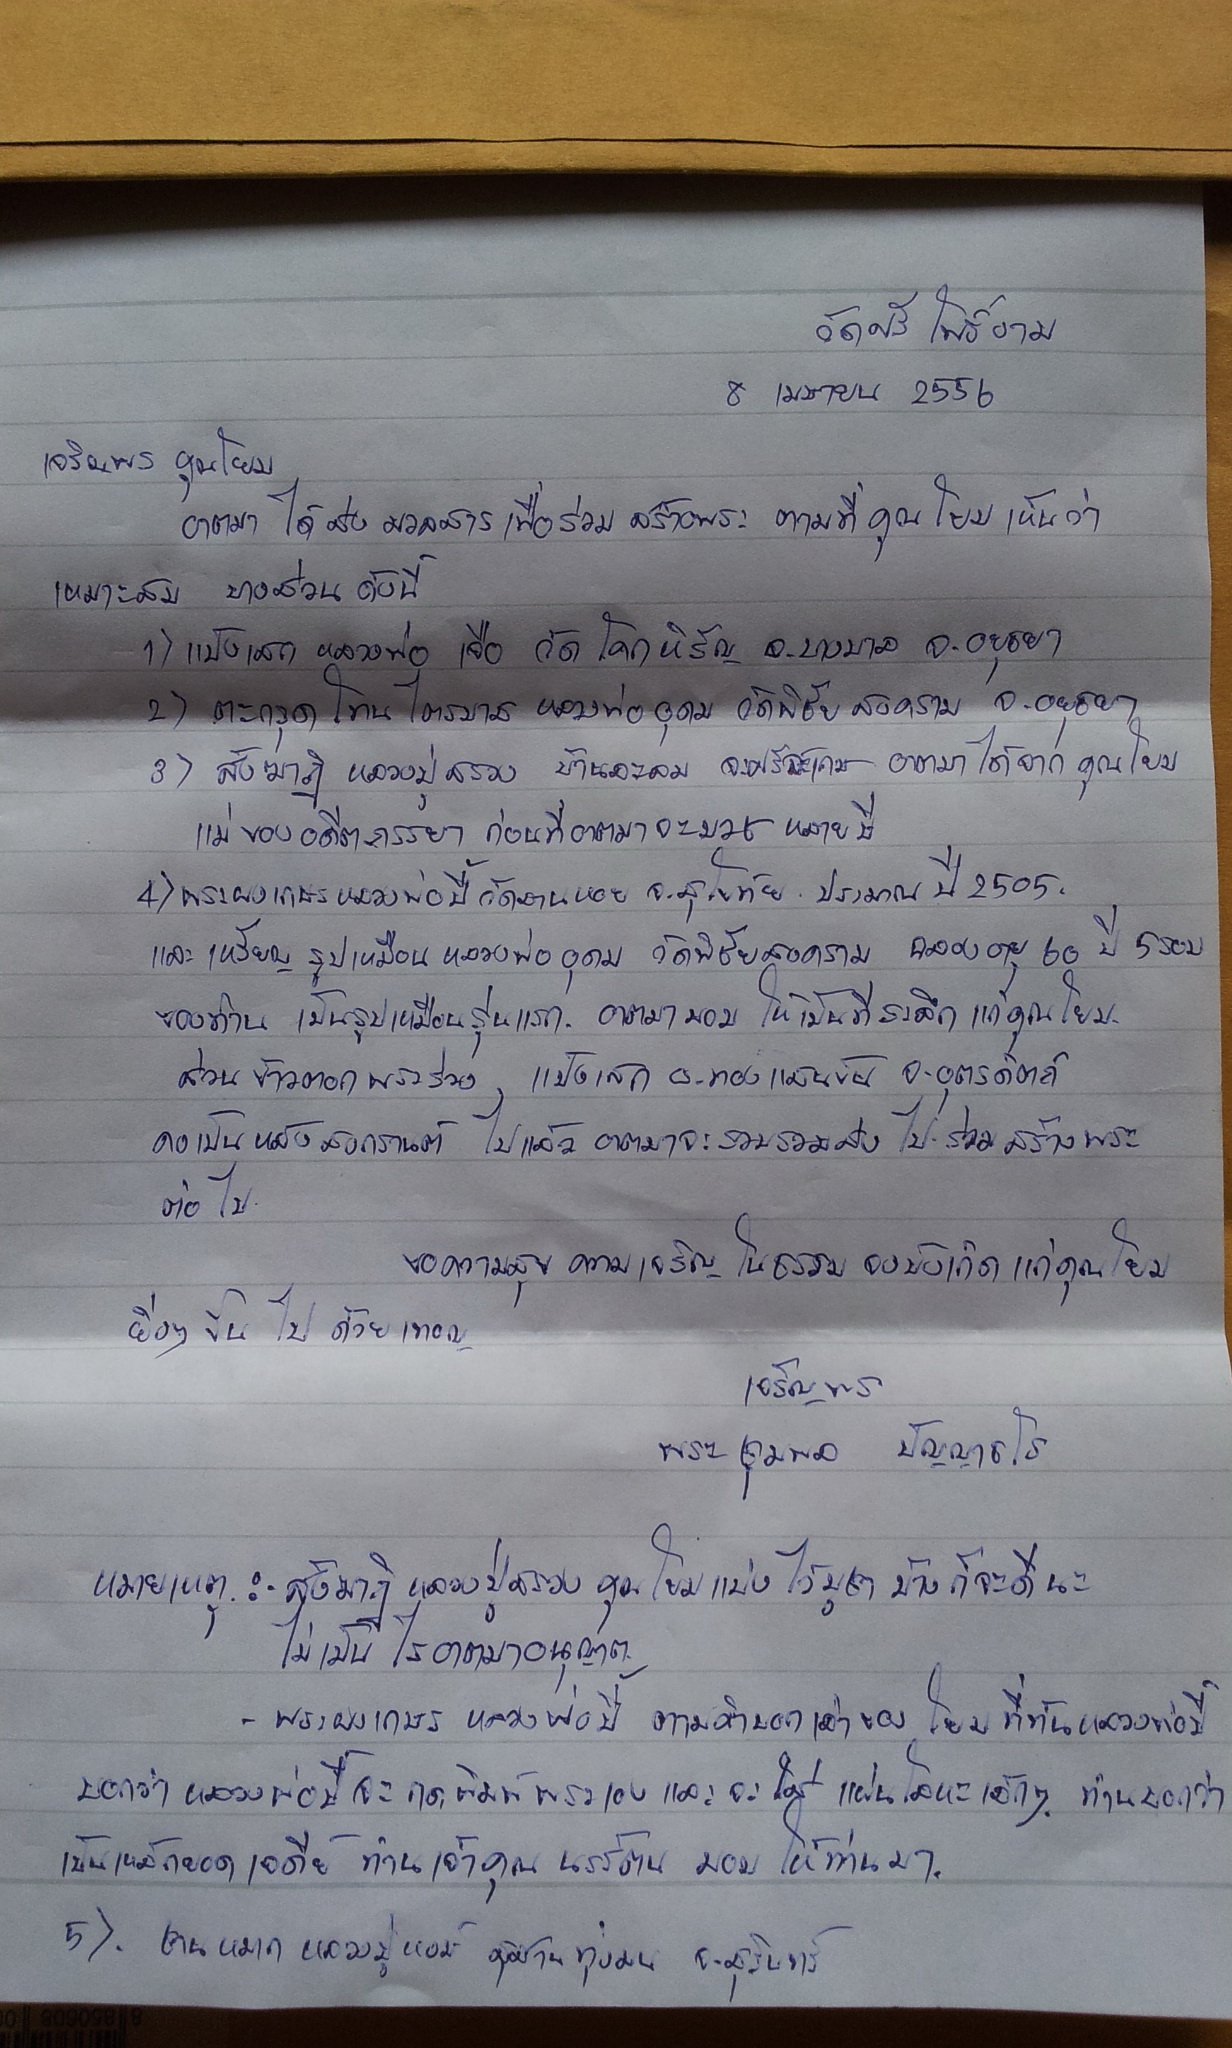 วัดศรีโพธิ์ยาม
8 เมษายน 2556
เจริญพร คุณโยม
อาตมา ได้ ส่ง มวลสาร เพื่อร่วม สร้างพระ ตามที่ คุณโยม เห็นว่า
เหมาะสม บางส่วน ดังนี้
1) แป้งเสก หลวงพ่อ เจือ วัด โคกหิรัญ อ.บางบาล จ.อยุธยา
2) ตะกรุด โทน ไตรมาส หลวงพ่อ อุดม วัดพิชัยสงคราม จ.อยุธยา
3) สังฆาฏิ หลวงปู่สรวง บ้านละลม จ.ศรีสะเกษ อาตมา ได้จาก คุณโยม
แม่ ของ อดีตภรรยา ก่อนที่อาตมา จะบวช หลายปี
4) พระผงเกษร หลวงพ่อปี้ วัดลานหอย จ.สุโขทัย ประมาณ ปี 2505.
และ เหรียญ รูปเหมือน หลวงพ่อ อุดม วัดพิชัยสงคราม ฉลองอายุ 60 ปี 5 รอบ
ของท่าน เป็นรูปเหมือนรุ่นแรก. อาตมา มอบ ให้เป็นที่ระลึก แก่คุณโยม.
ส่วน ข้าวตอก พระร่วง, แป้งเสก อ.ทองแสนขัน จ.อุตรดิตถ์
คงเป็น หลังสงกรานต์ ไปแล้ว อาตมาจะรวบรวมส่ง ไป ร่วม สร้าง พระ
ต่อ ไป.
ขอความสุข ความเจริญ ในธรรม จงบังเกิด แก่คุณโยม
ยิ่งๆ ขึ้น ไป ด้วย เทอญ
เจริญพร
พระ จุมพล ปัญญาธโร
หมายเหตุ :- สังฆาฏิ หลวงปู่สรวง คุณโยมแบ่ง ไว้บูชา บ้าง ก็จะดี นะ
ไม่เป็น ไร อาตมาอนุญาต
- พระผงเกษร หลวงพ่อปี้ ตามคำบอกเล่าของ โยม ที่ทันหลวงพ่อปี้
บอกว่า หลวงพ่อปี้ จะ กดพิมพ์พระเอง และ จะ ใส่ แผ่นโลหะเล็กๆ ท่านบอกว่า
เป็นเหล็กยอดเจดีย์ ท่านเจ้าคุณ นรรัตน มอบ ให้ท่านมา.
5). ชานหมาก หลวงปู่หงษ์ ทุ่งมน จ.สุรินทร์